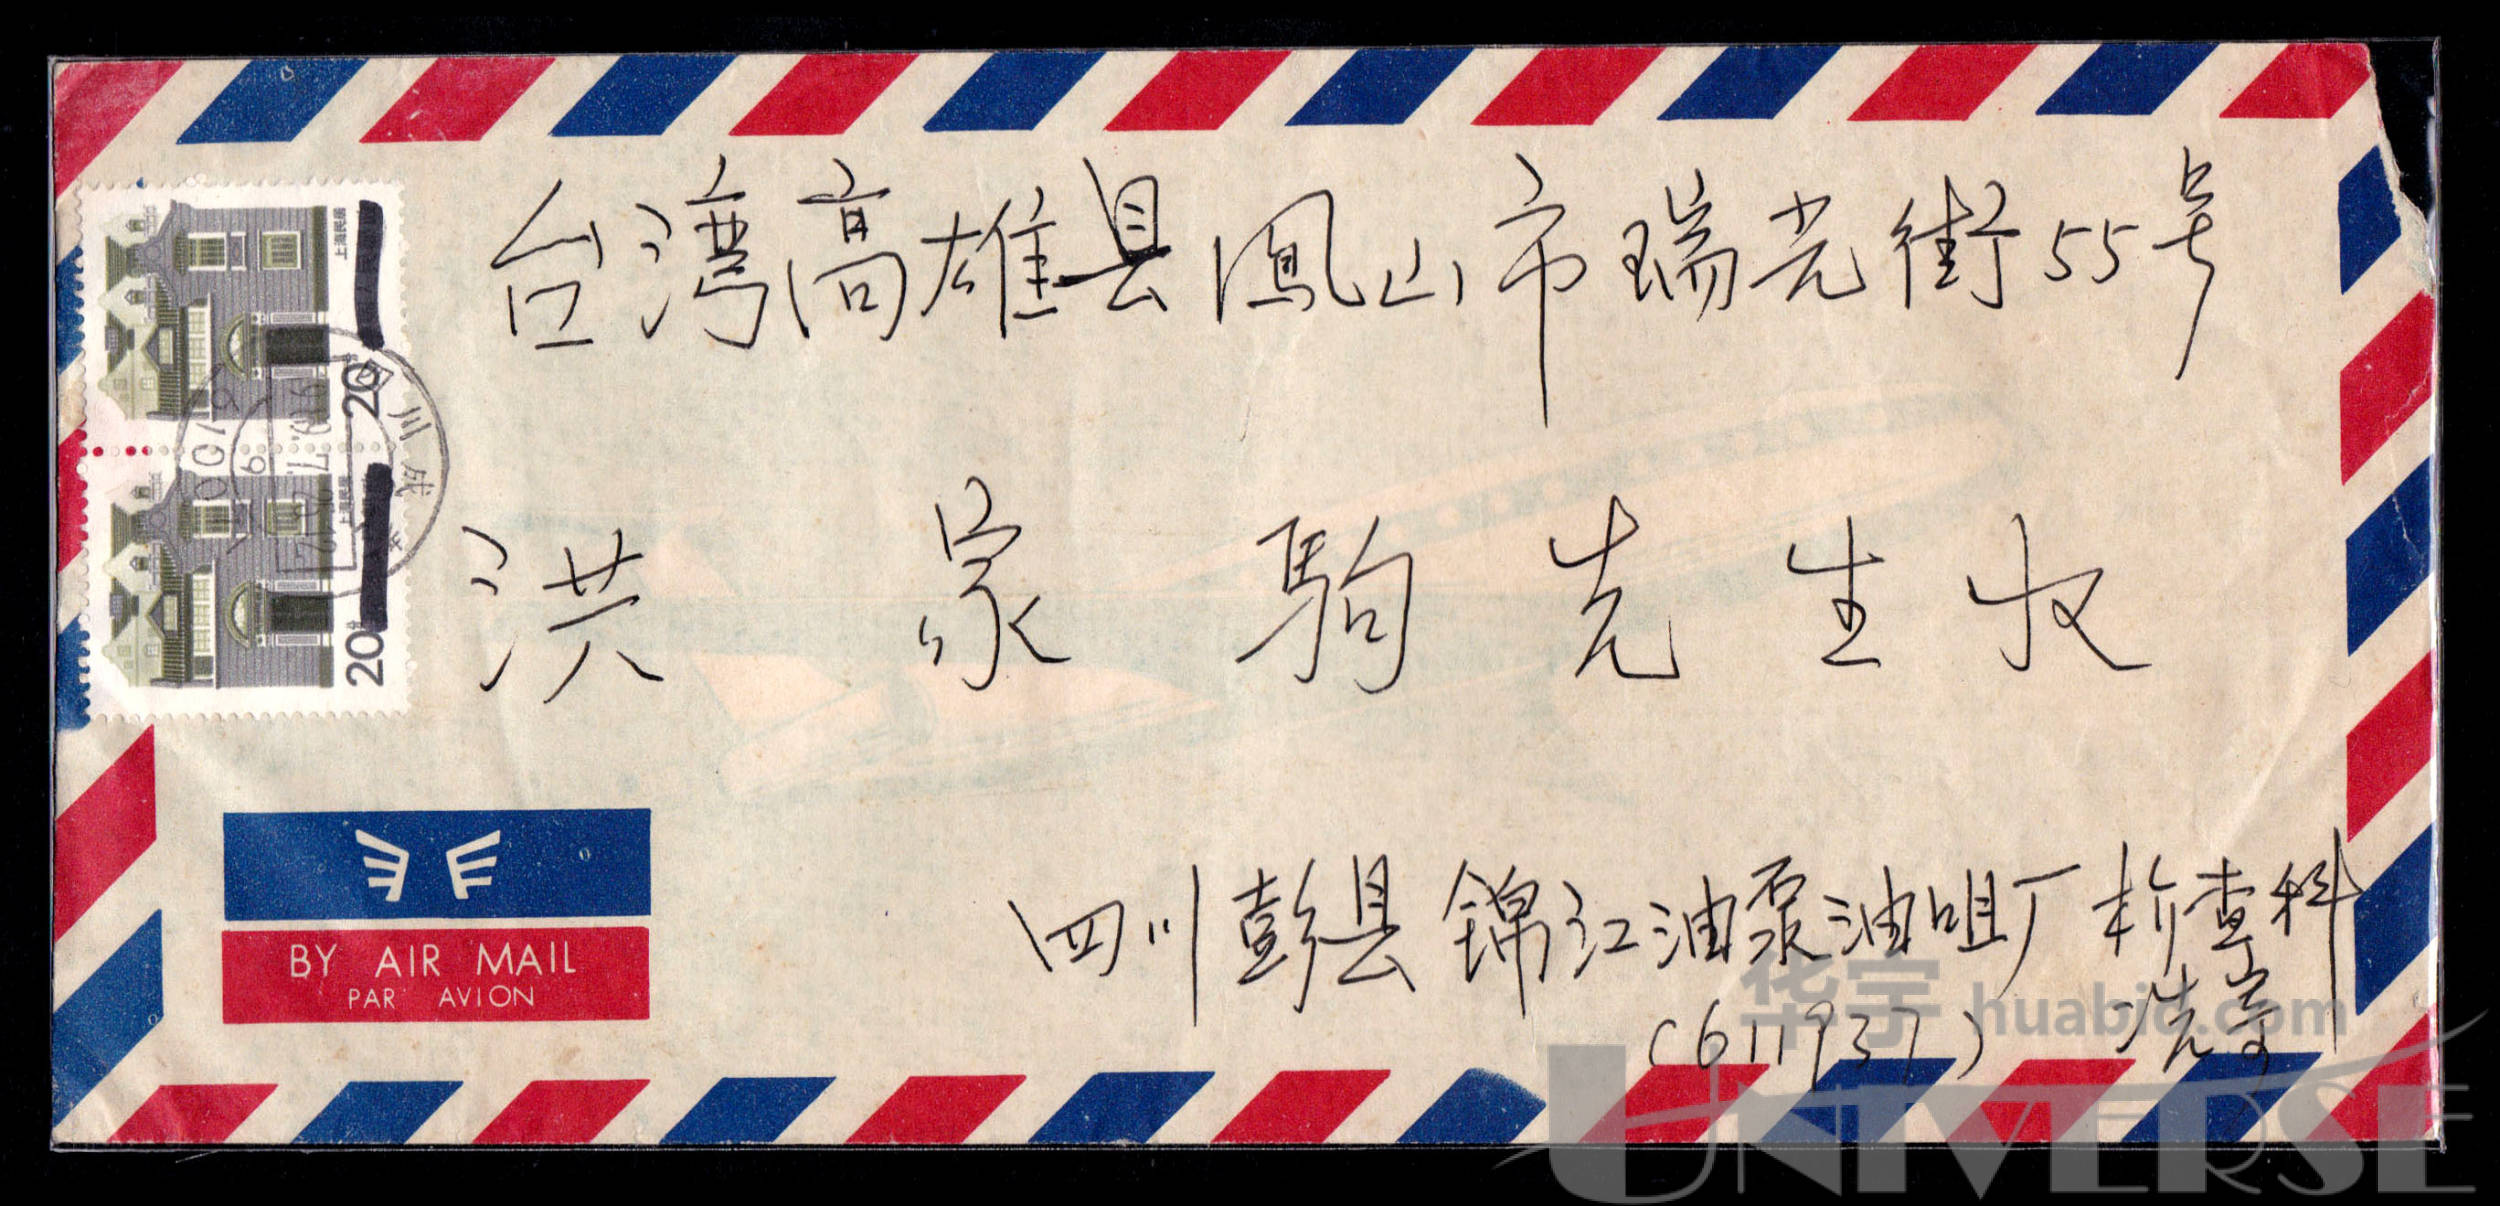 台湾高雄县凤山市瑞光街55号
洪家驹先生收
上海民居
20分
上海民居
20分
四川成
BY AIR MAIL
PAR AVION
四川彭县锦江油泵油咀厂检查科
(611937) 洗寄
华宇 huabid.com
UNIVERSE